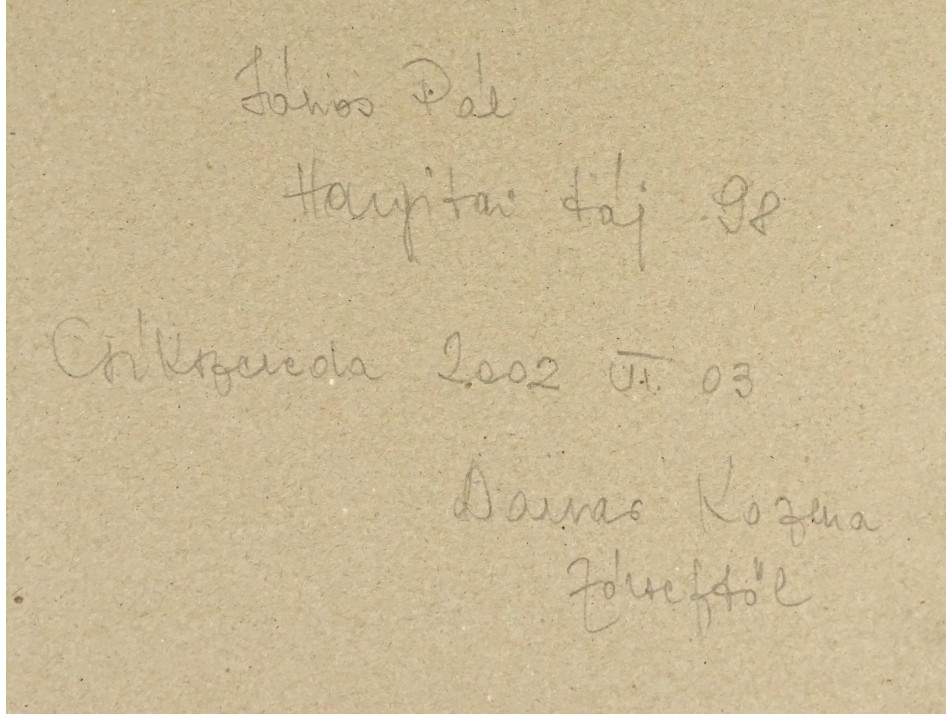 János Pál
Hargitai táj 98
Csíkszereda 2002 VI. 03
Kozma
Józseftől